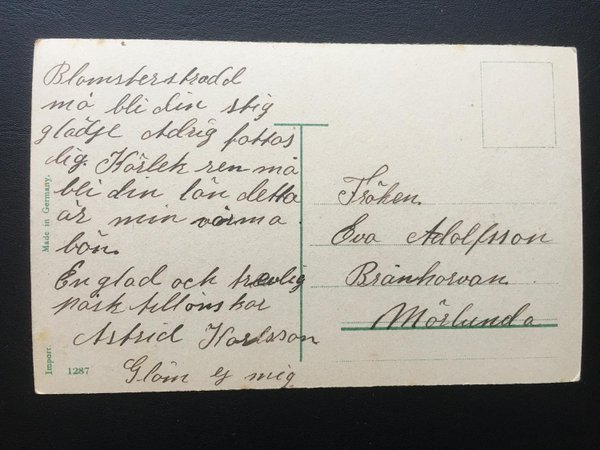 Blomsterstrødd
må bli din stig
glädje Aldrig fattas
dig. Kärlek ren må
bli din lön detta
är min varma
bön.
En glad och trevlig
påsk tillönskar
Astrid Karlsson
Glöm ej mig
Fröken
Eva Adolfsson
Mörlunda
Made in Germany.
Import.
1287